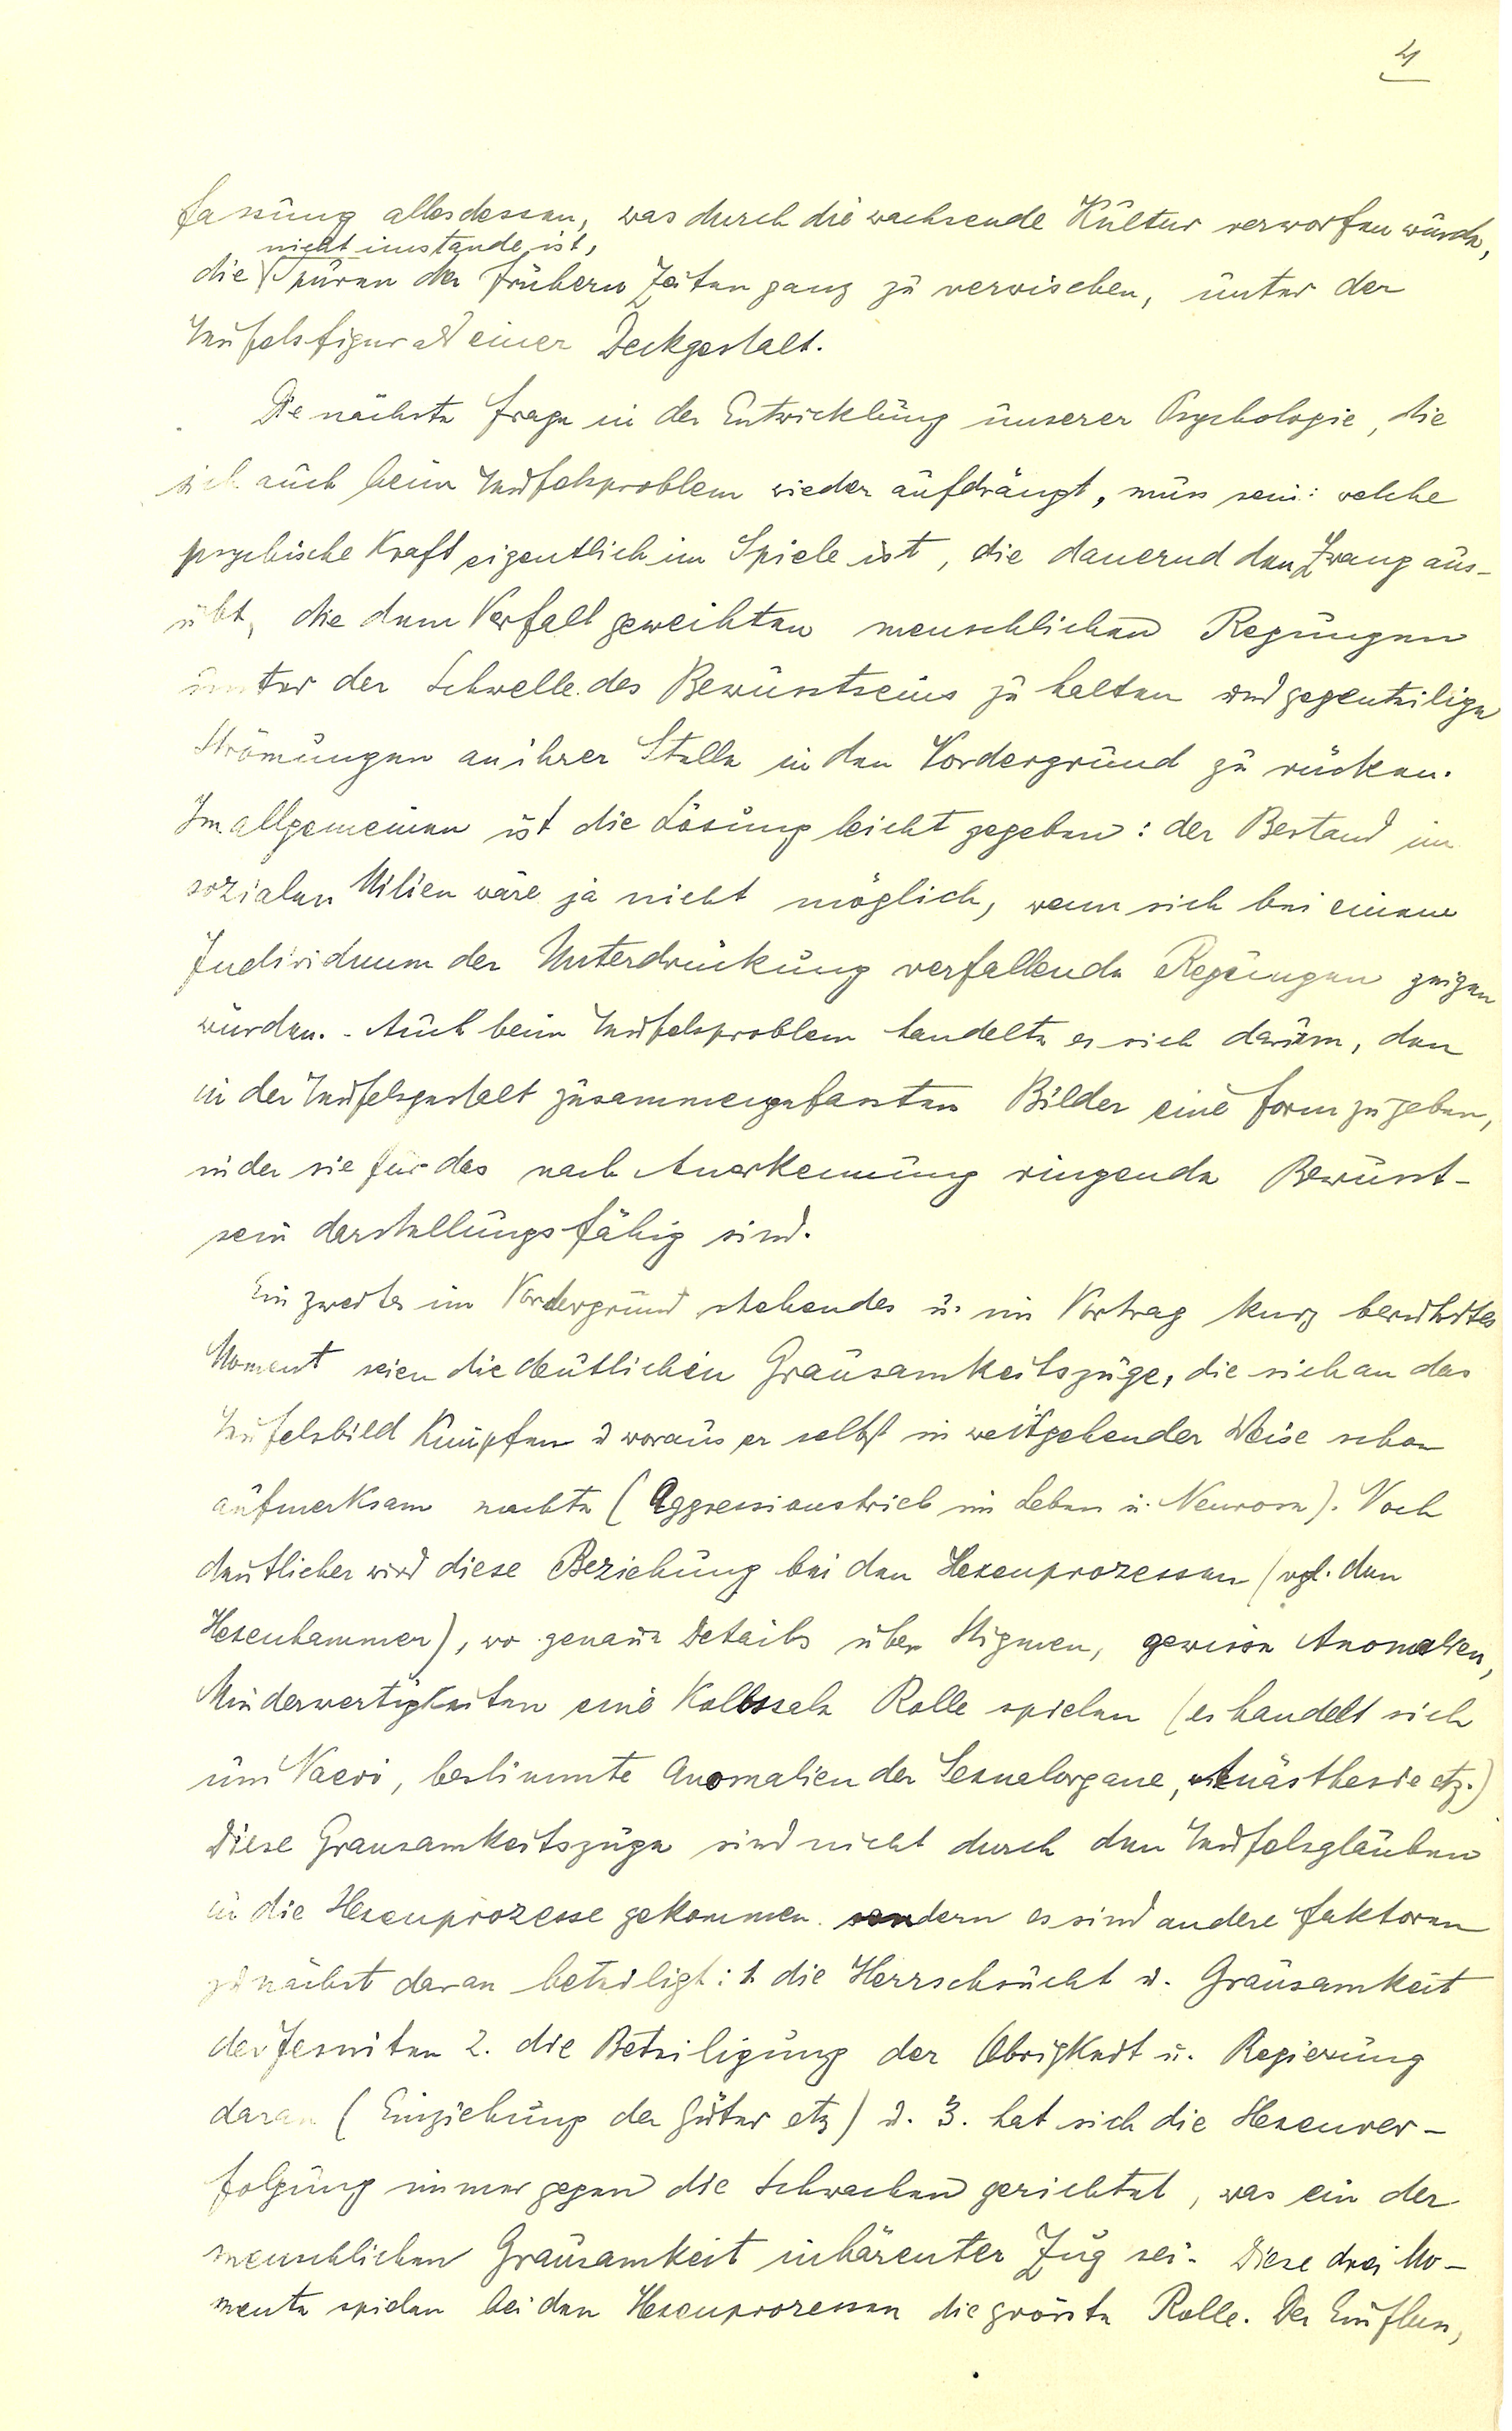 4
fassung alles dessen, was durch die wachsende Kultur verworfen wurde,
nicht imstande ist,
die Spuren der frühern Zeiten ganz zu verwischen, unter der
Teufelsfigur als einer Deckgestalt.
Die nächste Frage in der Entwicklung unserer Psychologie, die
sich auch beim Teufelsproblem wieder aufdrängt, muss sein: welche
psychische Kraft eigentlich im Spiele ist, die dauernd den Zwang aus-
übt, die dem Verfall geweihten menschlichen Regungen
unter der Schwelle des Bewusstseins zu halten und gegenteilige
Strömungen an ihrer Stelle in den Vordergrund zu rücken.
Im allgemeinen ist die Lösung leicht gegeben: der Bestand im
sozialen Milieu wäre ja nicht möglich, wenn sich bei einem
Individuum der Unterdrückung verfallende Regungen zeigen
würden. - Auch beim Teufelsproblem handelte es sich darum, den
in der Teufelsgestalt zusammengefassten Bilder eine Form zu geben,
in der sie für das nach Anerkennung ringende Bewusst-
sein darstellungsfähig sind.
Ein zweites im Vordergrund stehendes u. im Vortrag kurz berührtes
Moment seien die deutlichen Grausamkeitszüge, die sich an das
Teufelsbild knüpfen u woraus er selbst in weitgehender Weise schon
aufmerksam machte (Aggressionstrieb im Leben u. Neurose). Noch
deutlicher wird diese Beziehung bei den Hexenprozessen (vgl. den
Hexenhammer), wo genaue Details über Stigmen, gewisse Anomalien,
Minderwertigkeiten eine kolossale Rolle spielen (es handelt sich
um Naevi, bestimmte Anomalien der Sexualorgane, Anästhesie etz.)
Diese Grausamkeitszüge sind nicht durch den Teufelsglauben
in die Hexenprozesse gekommen sondern es sind andere Faktoren
zunächst daran beteiligt: 1. die Herrschsucht u. Grausamkeit
der Jesuiten 2. die Beteiligung der Obrigkeit u. Regierung
daran (Einziehung der Güter etz) u. 3. hat sich die Hexenver-
folgung immer gegen die Schwachen gerichtet, was ein der
menschlichen Grausamkeit inhärenter Zug sei. Diese drei Mo-
mente spielen bei den Hexenprozessen die grösste Rolle. Der Einfluss,